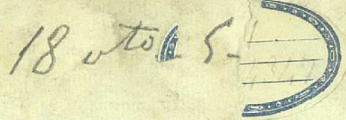 18 vto 5-